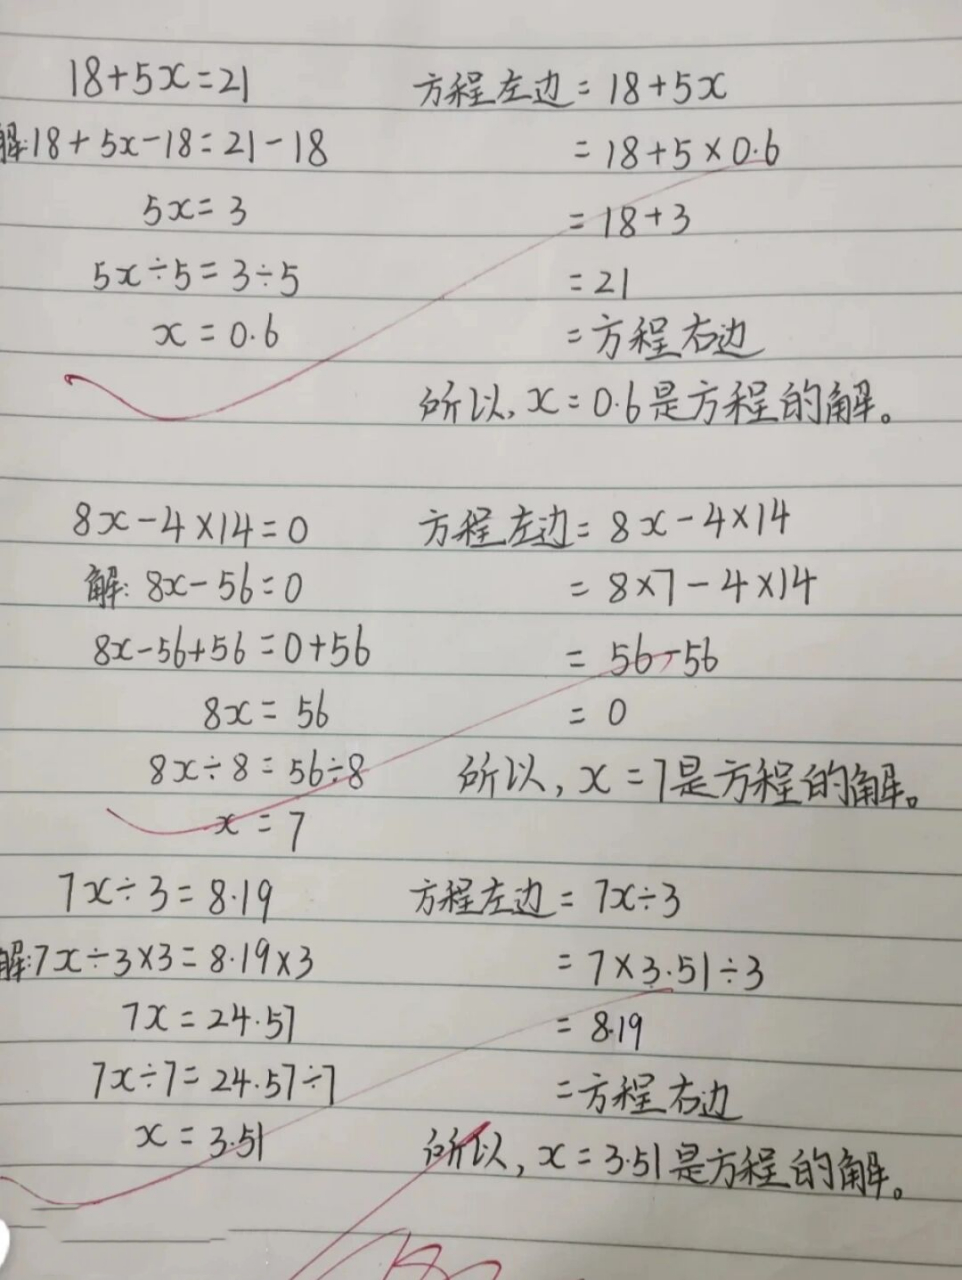 18+5x=21
解:18+5x-18=21-18
5x=3
5x÷5=3÷5
x=0.6
方程左边=18+5x
=18+5×0.6
=18+3
=21
=方程右边
所以,x=0.6是方程的解。
8x-4×14=0
解:8x-56=0
8x-56+56=0+56
8x=56
8x÷8=56÷8
x=7
方程左边=8x-4×14
=8×7-4×14
=56-56
=0
所以,x=7是方程的解。
7x÷3=8.19
解:7x÷3×3=8.19×3
7x=24.57
7x÷7=24.57÷7
x=3.51
方程左边=7x÷3
=7×3.51÷3
=8.19
=方程右边
所以,x=3.51是方程的解。